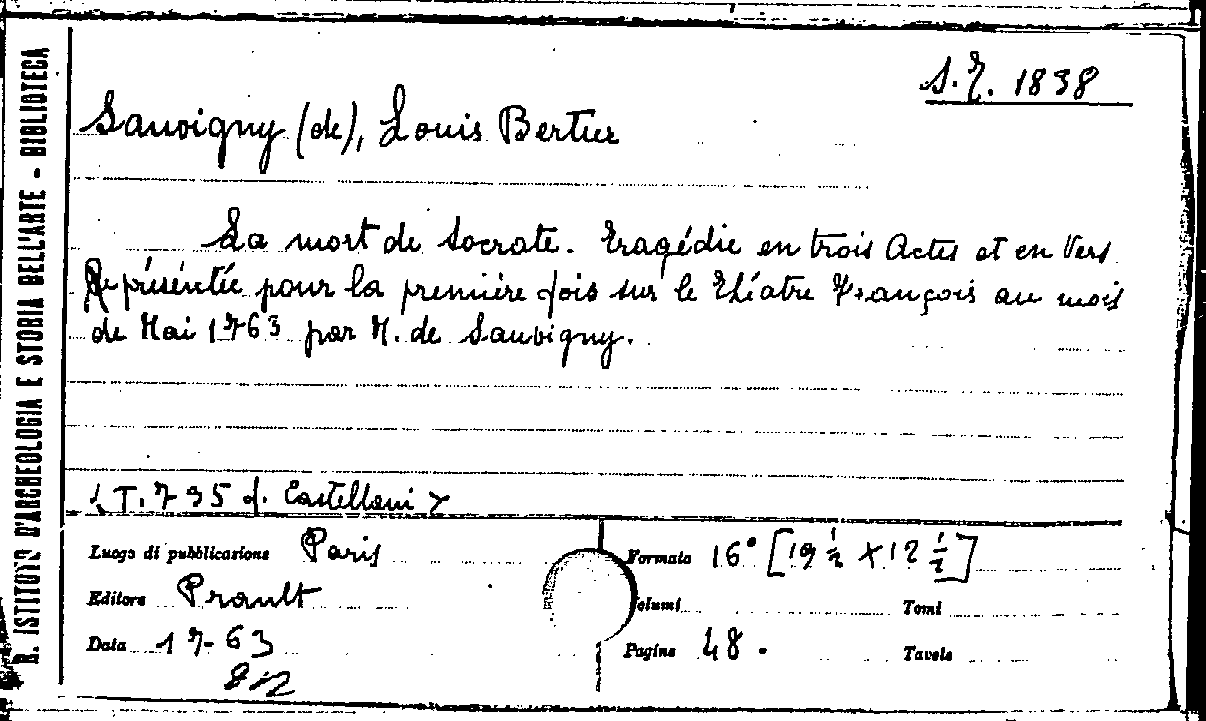 R. ISTITUTO D'ARCHEOLOGIA E STORIA DELL'ARTE - BIBLIOTECA
S.T. 1838
Sauvigny (de), Louis Bertier
La mort de Socrate. Tragédie en trois Actes et en Vers
Représéntée pour la première fois sur le Théatre François au mois
de Mai 1763 par M. de Sauvigny.
T. 735 f. Castellani
Luogo di pubblicazione Paris
Formato 16° [19 1/2 x 12 1/2]
Editore Prault
Volumi
Tomi
Data 1763
Pagine 48.
Tavole
812